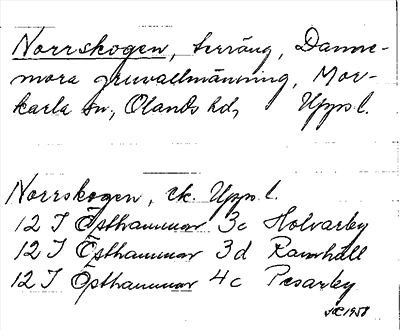 Norrskogen, terräng, Danne-
mora gruvallmänning, Mor-
karla sn, Olands hd, Upps l.
Norrskogen, ek. Upps l.
12 I Östhammar 3c Holvarby
12 I Östhammar 3d Ramhäll
12 I Östhammar 4c Pesarby
1958